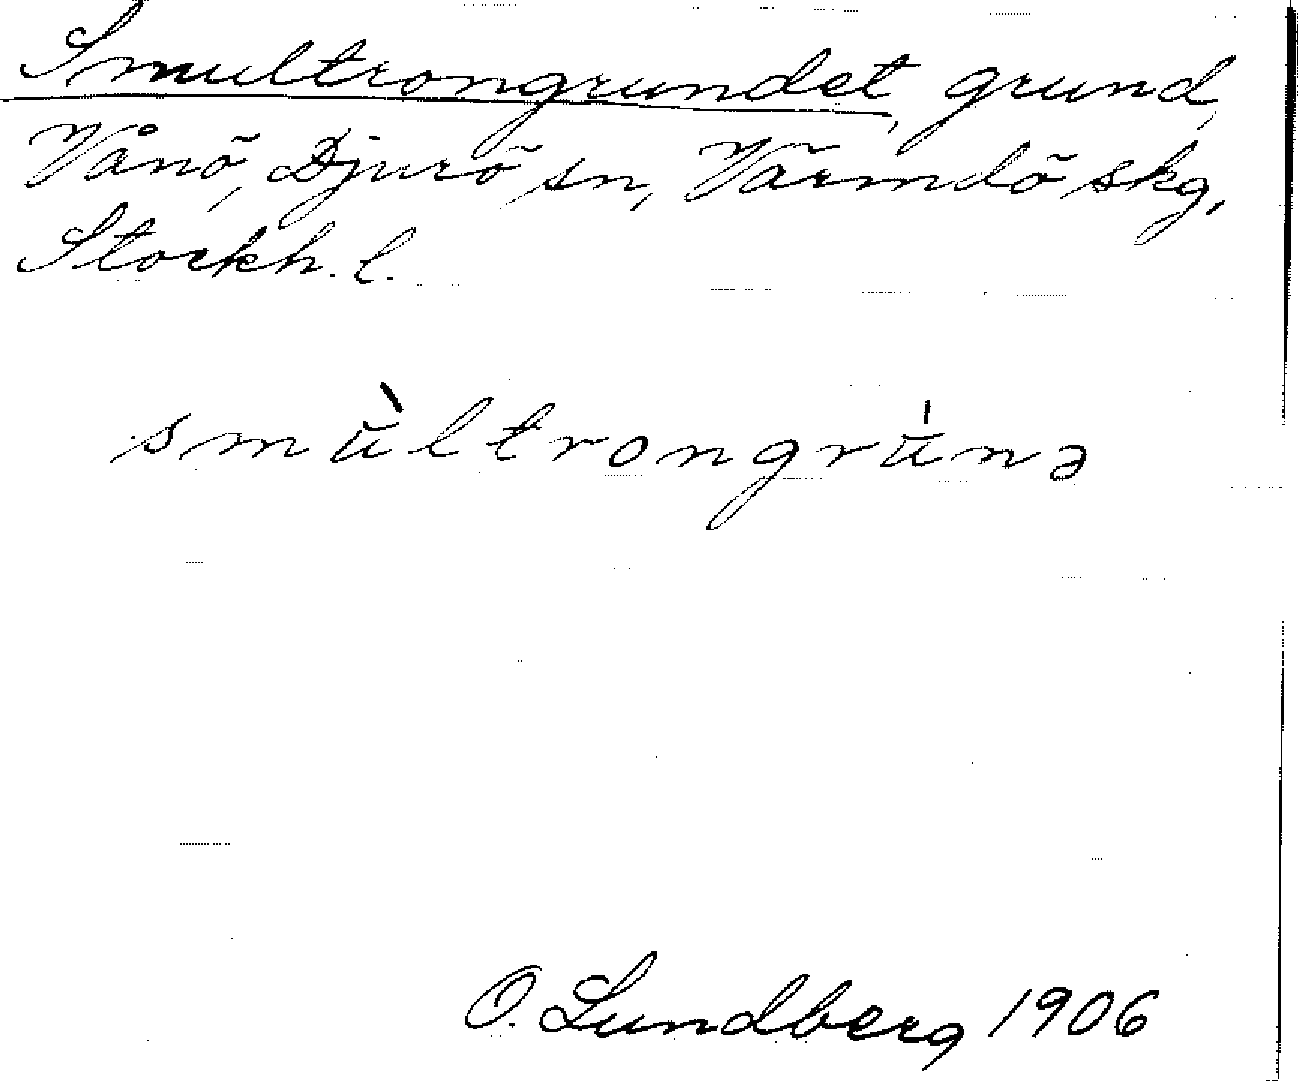 Smultrongrundet, grund,
Vånö, Djurö sn, Värmdö skg,
Stockh. l.
smùltrongrùnə
O. Lundberg 1906